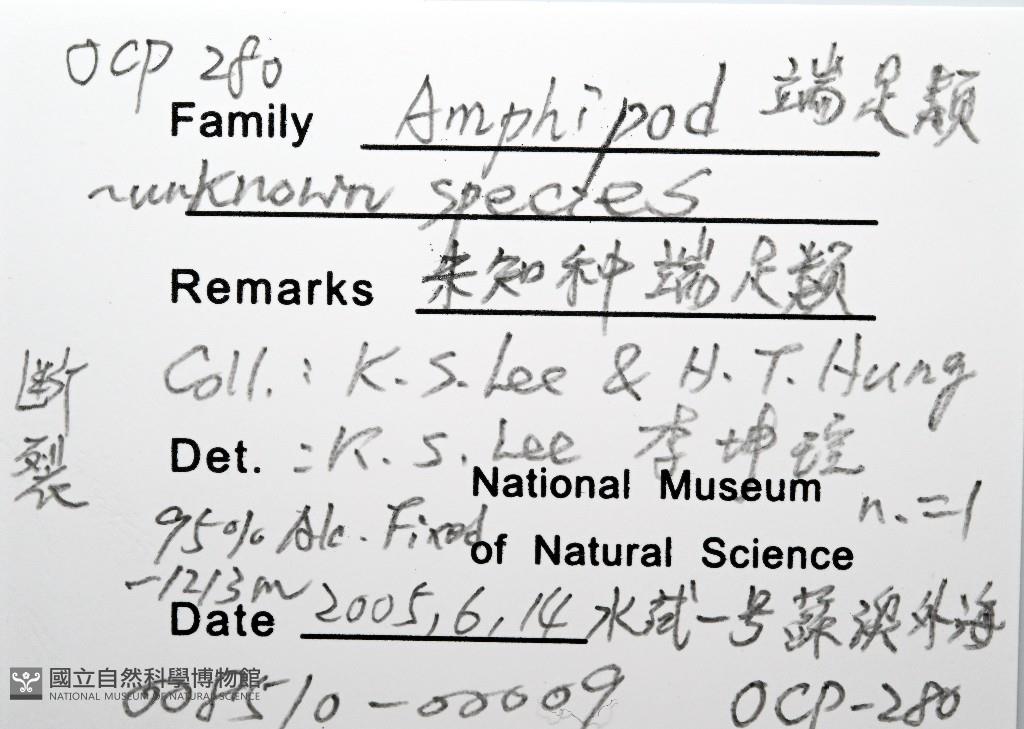 OCP 280
Family Amphipod 端足類
~unknown species
Remarks 未知种端足類
Coll.: K. S. Lee & H. T. Hung
断裂
Det. : K. S. Lee 李坤瑄
National Museum
n. = 1
95% Alc. Fixed of Natural Science
-1213m
Date 2005, 6, 14 水試一号 蘇澳外海
國立自然科學博物館
NATIONAL MUSEUM OF NATURAL SCIENCE
008510-00009 OCP-280